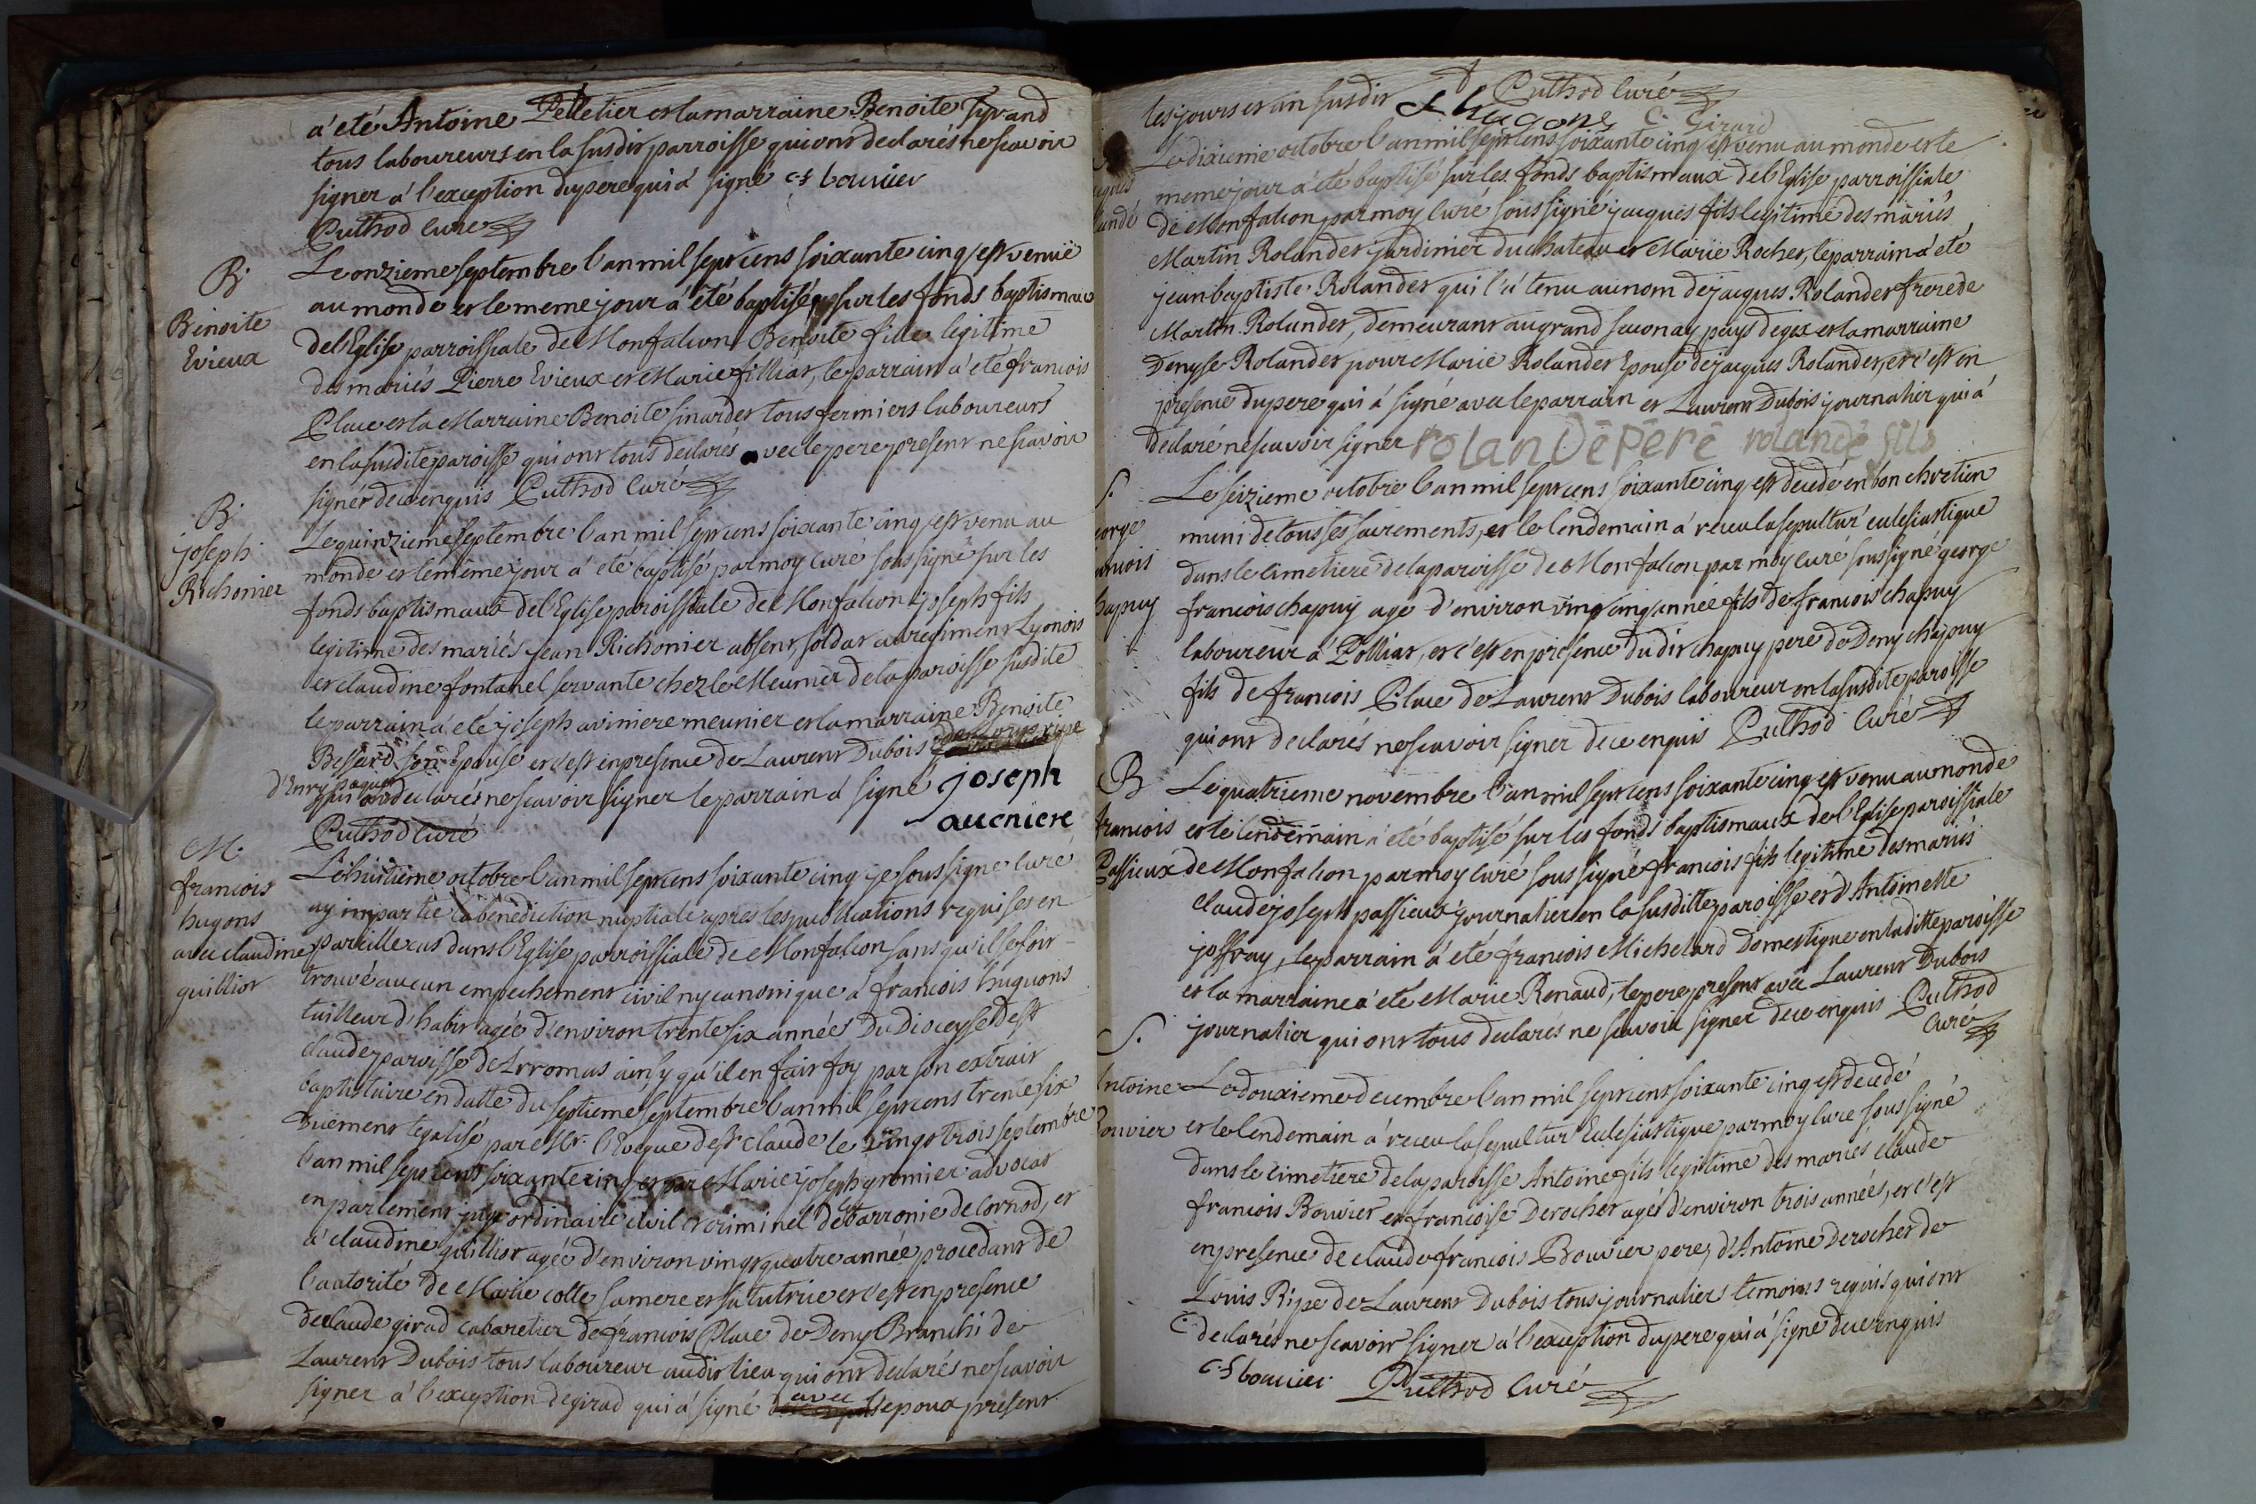 a' eté Antoine Pelletier et la marraine Benoite Sigrand
tous laboureurs en la susdit parroisse qui ont declarés ne scavoir
signer a' l'exception du pere qui a' signé c f bouvier
Puthod Curé
B.
Benoite
Evieux
Le onzieme septembre l'an mil sept cens soixante cinq est venuë
au monde et le meme jour a' été baptisée sur les fonds baptismau
de l'Eglise parroissiale de Monfalcon Benoite fille legitime
des mariés Pierre Evieux et Marie filliat, le parrain a' eté francois
Place et la Marraine Benoite sinardet tous fermiers laboureurs
en la susdite paroisse qui ont tous declarés avec le pere present ne scavoir
signer de ce enquis Puthod Curé
B.
joseph
Richonier
Le quinzieme septembre l'an mil sept cens soixante cinq est venu au
monde et le même jour a' été baptisé par moy curé sous signé sur les
fonds baptismaux de l'Eglise paroissiale de Monfalcon joseph fils
legitime des mariés jean Richonier absent, soldat au regiment Lyonois
et claudine fontanel servante chez le Meunier de la paroisse susdite
le parrain a eté joseph aviniere meunier et la marraine Benoite
Bessard son Epouse et c'est en presence de Laurent Dubois
qui ont declarés ne scavoir signer le parrain a' signé joseph
aueniere
Puthod Curé
M.
francois
hugons
avec claudine
guilliot
Le huitieme octobre l'an mil sept cens soixante cinq je sous signé curé
ay impartie la bénédiction nuptiale apres les publications requises en
pareille cas dans l'Eglise parroissiale de Monfalcon sans qu'il se soit
trouvé aucun empechement civil ny canonique a' francois huguons
tailleur d'habit agée d'environ trente six années du Dioceyse de st
claude paroisse de Arromas ainsy qu'il en fait foy par son extrait
baptistaire en datte du septieme septembre l'an mil sept cens trente six
Duëment legalisé par Mr. l'Eveque de st. claude le vingt trois septembre
l'an mil sept cent soixante cinq et par Marie joseph gromier advocat
en parlement juge ordinaire civil et criminel de la barronie de Cornod, et
a' claudine guilliot agée d'environ vingt quatre année procedant de
l'autorité de Marie cotte sa mere et sa tutrice et c'est en presence
de claude girad cabaretier de francois Place de Deny Branchi de
Laurent Dubois tous laboureur audit lieu qui ont declarés ne scavoir
signer a' l'exception de girad qui a' signé avec l'epoux présent
les jours et an susdit f hugons Puthod Curé
C. Girard
Le dixieme octobre l'an mil sept cens soixante cinq est venu au monde et le
meme jour a' été baptisé sur les fonds baptismaux de l'Eglise parroissiale
de Monfalcon par moy Curé sous signé jacques fils legitime des mariés
Martin Rolandet jardinier du chateau et Marie Rochet, le parrain a' eté
jean baptiste Rolandet qui l'a tenu au nom de jacques Rolandet frere de
Martin Rolandet, demeurant au grand saconay pays de gex et la marraine
Denyse Rolandet pour Marie Rolandet Epouse de jacques Rolandet, et c'est en
presence du pere qui a' signé avec le parrain et Laurent Dubois journalier qui a'
declaré ne scavoir signer rolandé pere rolandé fils
S.
eorge
ancois
hapuy
Le seizieme octobre l'an mil sept cens soixante cinq est decedé en bon chretien
muni de tous ses sacrements, et le lendemain a' receu la sepultur eclesiastique
dans le cimetiere de la paroisse de Monfalcon par moy curé sous signé george
francois chapuy agé d'environ vingt cinq année fils de francois chapuy
laboureur a' Polliat, et c'est en présence dudit chapuy pere de Deny chapuy
fils de francois Place de Laurent Dubois laboureur en la susdite paroisse
qui ont declarés ne scavoir signer de ce enquis Puthod Curé
B
francois
Passieux
Le quatrieme novembre l'an mil sept cens soixante cinq est venu au monde
et le lendemain a été baptisé sur les fonds baptismaux de l'Eglise paroissiale
de Monfalcon par moy Curé sous signé francois fils legitime des mariés
claude joseph passieux journalier en la susditte paroisse et d'Antoinette
joffray, le parrain a' eté francois Michelard Domestique en la ditte paroisse
et la marraine a' eté Marie Renaud, le pere present avec Laurent Dubois
journalier qui ont tous declarés ne scavoir signer de ce enquis Puthod
Curé
S.
Antoine
Bouvier
Le douxieme decembre l'an mil sept cens soixante cinq est decedé
et le lendemain a' receu la sepultur Eclesiastique par moy curé sous signé
dans le cimetiere de la paroisse Antoine fils legitime des mariés claude
francois Bouvier et francoise Derochet agés d'environ trois années, et c'est
en presence de claude francois Bouvier pere, d'Antoine Derochet de
Louis Ripe de Laurent Dubois tous journaliers temoins requis qui ont
declarés ne scavoir signer a' l'exception du pere qui a' signé de ce enquis
c f bouvier Puthod Curé